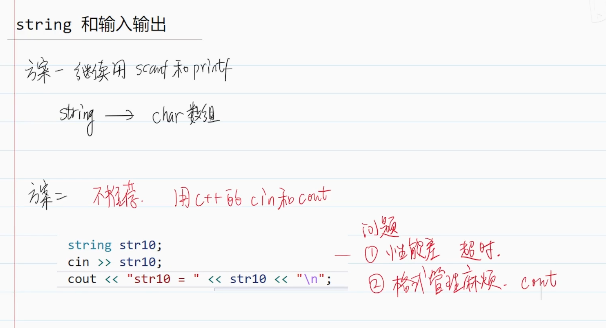 string 和输入输出
方案一 继续用 scanf 和 printf
string → char 数组
方案二 不推荐. 用 c++的 cin和cout
string str10;
cin >> str10;
cout << "str10 = " << str10 << "\n";
问题
① 性能差 超时.
② 格式管理麻烦. cout